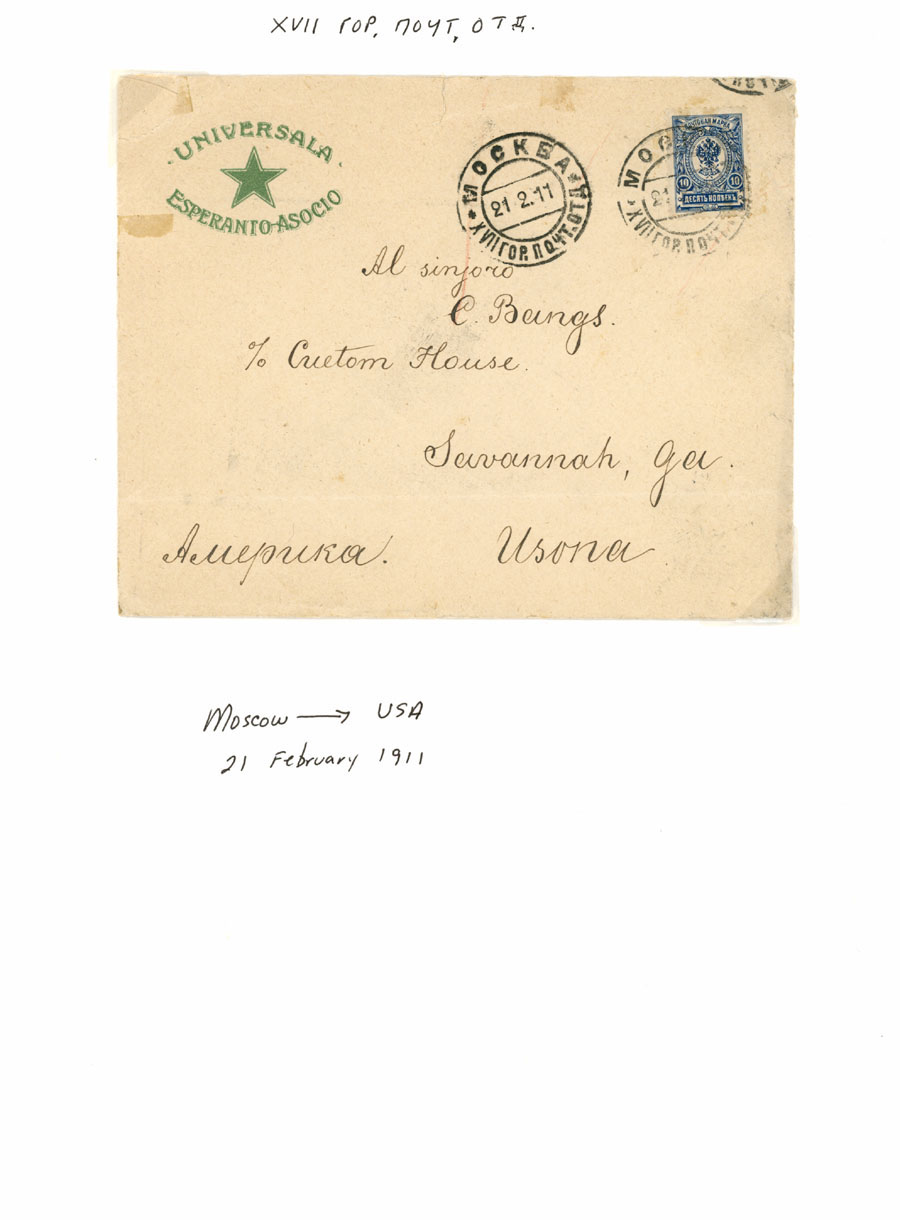 XVII ГОР, ПОЧТ, ОТД.
UNIVERSALA
ESPERANTO-ASOCIO
МОСКВА
21.2.11
XVII ГОР. ПОЧТ. ОТД.
МОС
21
XVII ГОР. ПОЧТ.
ПОЧТОВАЯ МАРКА
10 10
ДЕСЯТЬ КОПѢЕКЪ
Al sinjoro
C. Bangs.
% Cuetom House.
Savannah, Ga.
Америка. Usona
Moscow → USA
21 February 1911